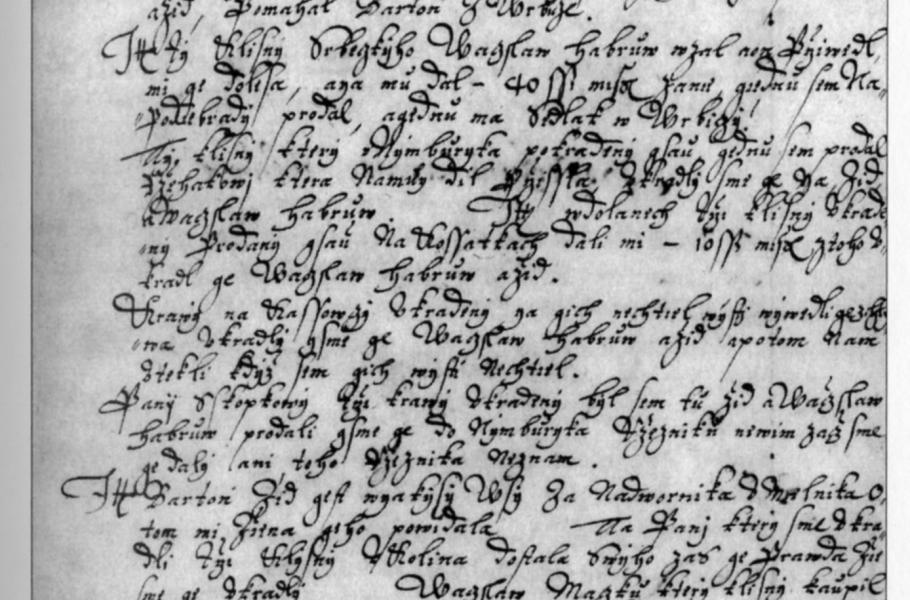 a žid, Pomahal Barton z Wrbÿze.
Itē Ty Klisny Srbeczkyho Waczlaw habruw wzal a on Přiwedl
mi ge dolesa, a ya mu dal – 40 ss miss Panu, gednu sem Na
Poděbrady prodal, a gednu ma Sedlak w Wrbiczy.
Ty klisny ktery v Nymburgka pokradeny gsau, gednu sem prodal
Ržehakowj ktera Namug dil Przissla, Vkradly sme ge ya, Žid
a Waczlaw habruw. Itē w dolanech Tři klisny Vkrade
ny Prodany gsau Na Kossatkach dali mi – 10 ss miss z toho v
kradl ge Waczlaw habruw a žid.
Krawy na Kassowczy Vkradeny ya gich nechtiel wyssti wywedl
wa Vkradly gsme ge Waczlaw habruw a žid a potom Nam
Vtekli když sem gich wyssti Nechtiel.
Panÿ Sskopkowy Tři krawy Vkradeny byl sem tu žid a Waczlaw
habruw prodali gsme ge do Nymburgka Ržezniku newim zacz sme
ge daly ani toho Ržeznika Neznam.
Itē Barton Žid gest nyakysy Wsy Za Nadwornika v Mielnika o
tom mi Žiena geho powidala Ta Panj ktery sme vkra
dli Tři Klysny v Kolina dostala Swyho zas ge Prawda že
sme ge Vkradly Waczlaw Maczku ktery klisny kaupil